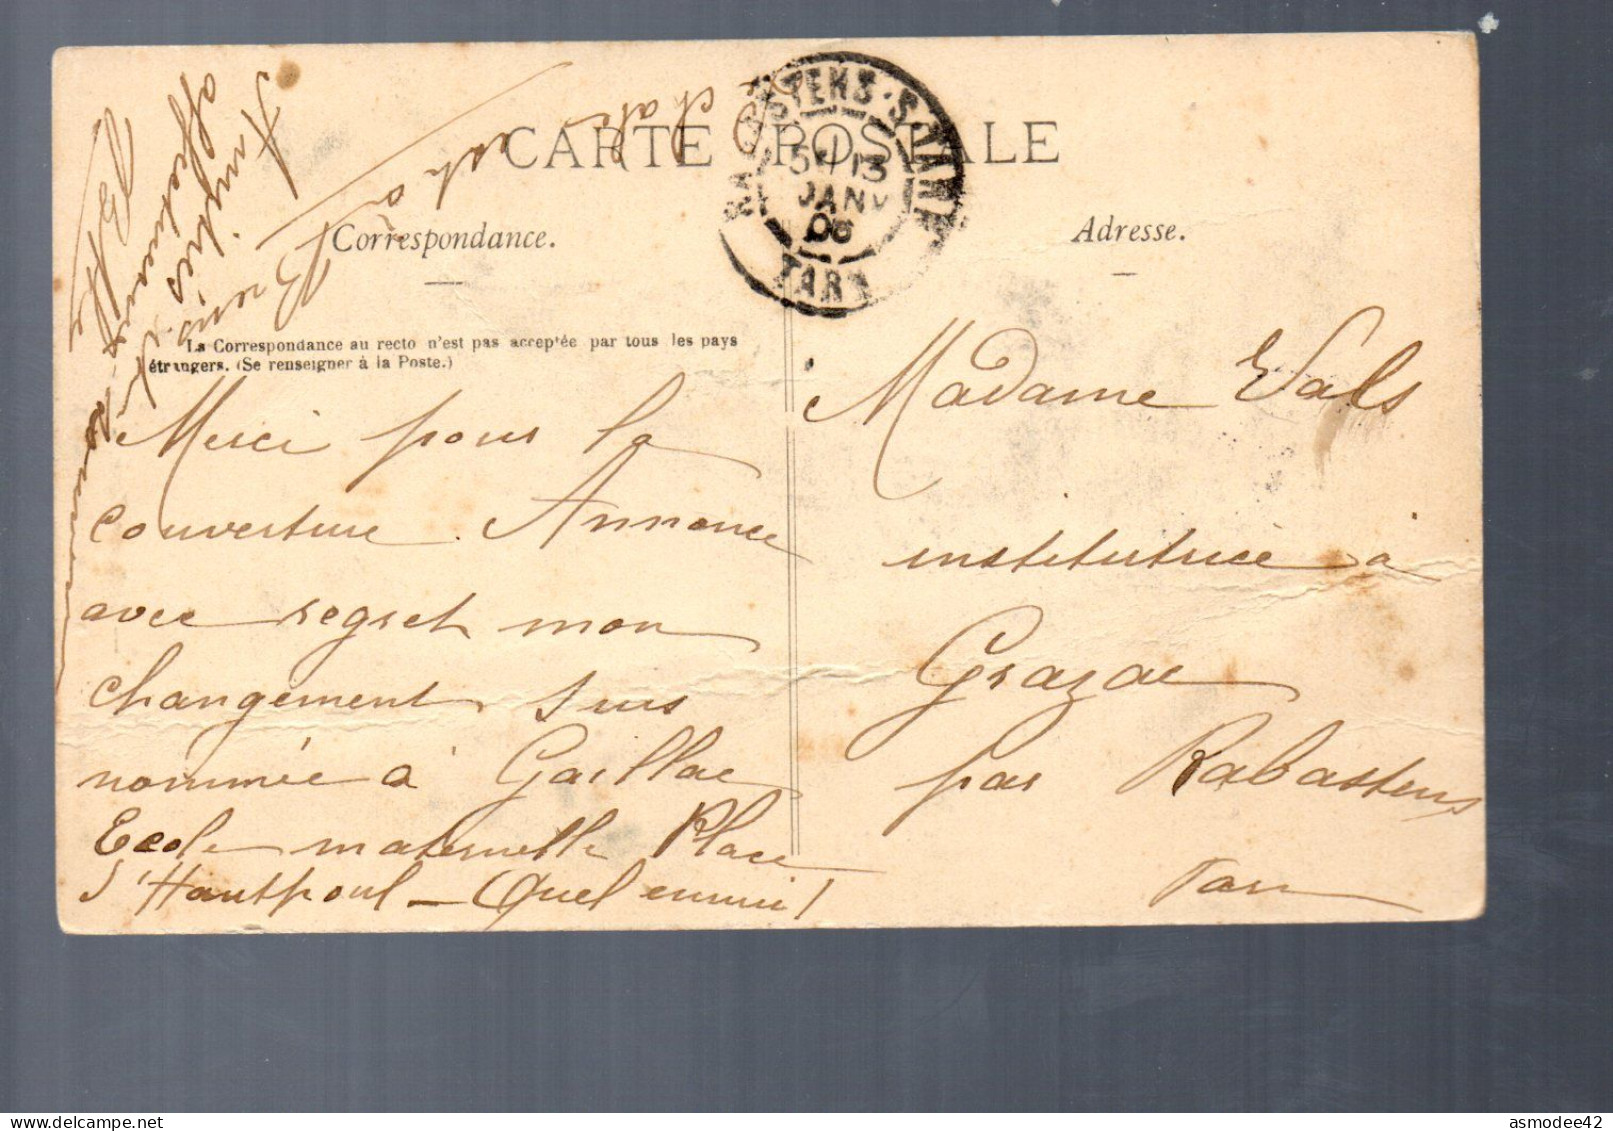 CARTE POSTALE
Correspondance.
Adresse.
La Correspondance au recto n'est pas acceptée par tous les pays
étrangers. (Se renseigner à la Poste.)
RABASTENS-S-TARN
5E 13
JANV
06
TARN
Merci pour la
couverture. Annonce
avec regret mon
changement suis
nommée à Gaillac
Ecole maternelle Place
d'Hautpoul - Quel ennui!
Amitiés
affectueuses
Madame Vals
institutrice à
Grazac
par Rabastens
Tarn
asmodee42